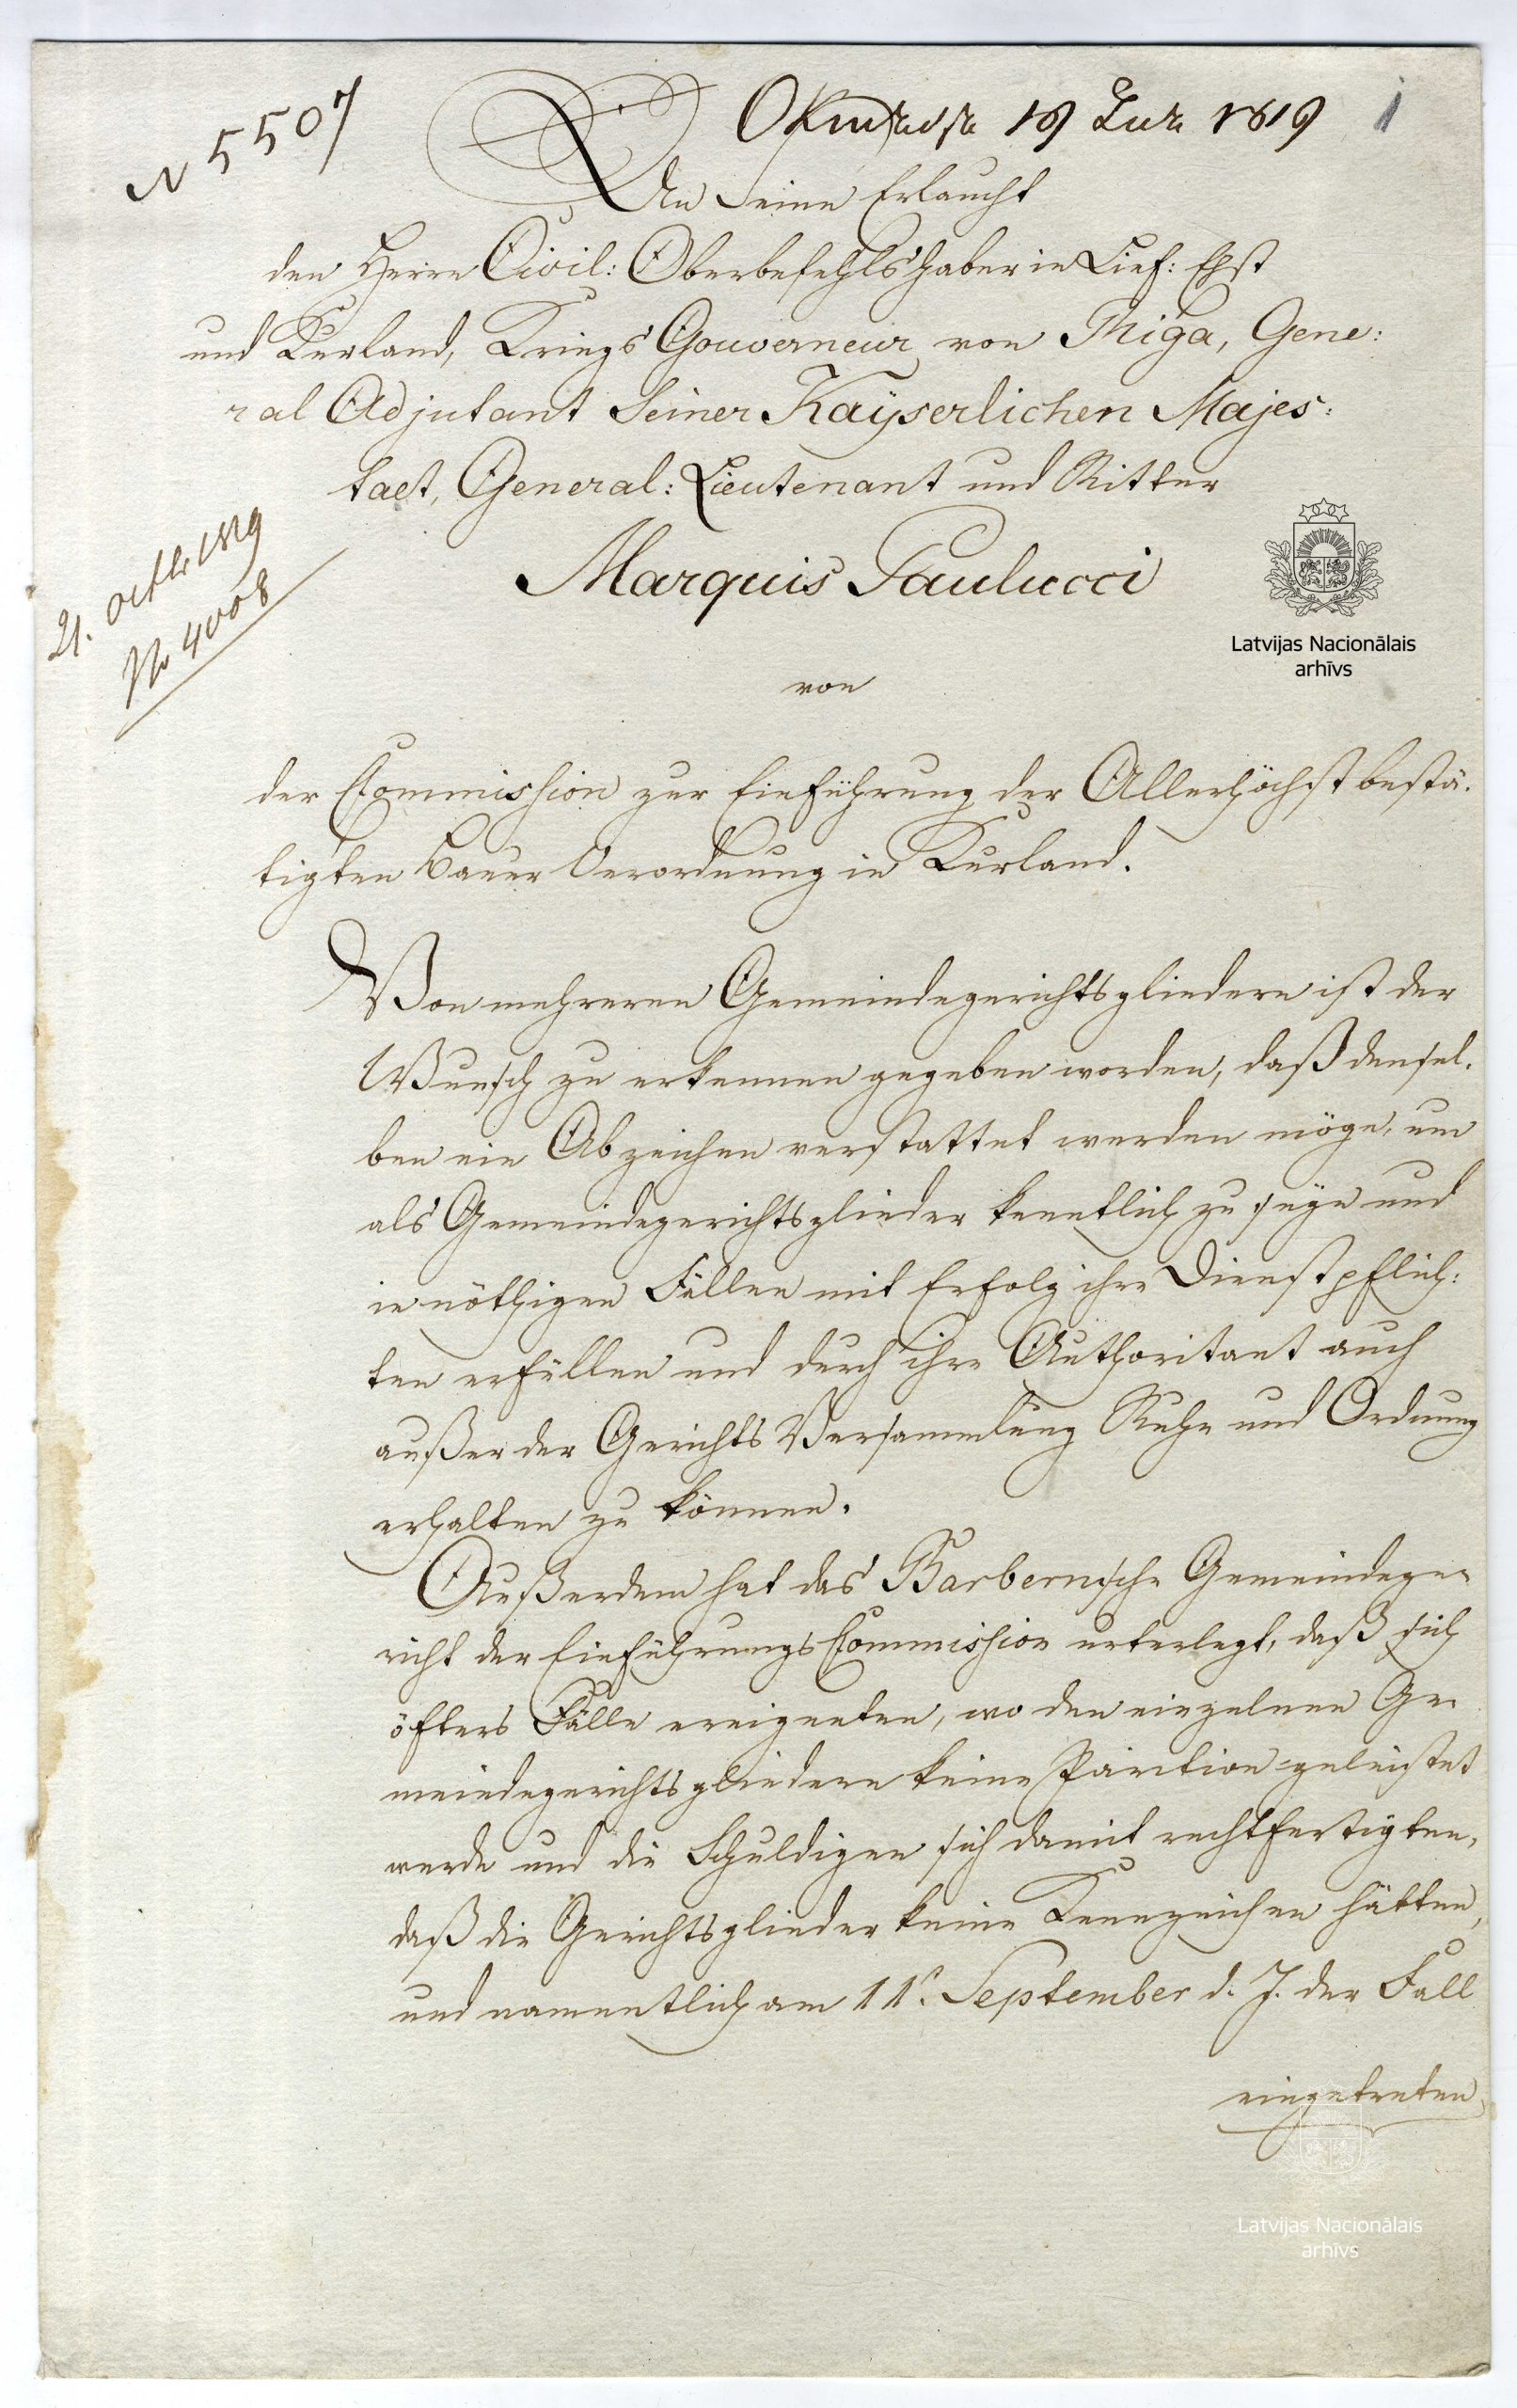 N 5507
Октября 18 дня 1819
1
An Seine Erlaucht
den Herrn Civil: Oberbefehlshaber in Lief: Ehst
und Kurland, Kriegs Gouverneur von Riga, Gene:
ral Adjutant Seiner Kaÿserlichen Majes:
taet, General: Lieutenant und Ritter
Marquis Paulucci
21. Octbr 1819
No 4008
Latvijas Nacionālais
arhīvs
von
der Commission zur Einführung der Allerhöchst bestä:
tigten Bauer Verordnung in Kurland.
Von mehreren Gemeindegerichtsgliedern ist der
Wunsch zu erkennen gegeben worden, daß densel:
ben ein Abzeichen verstattet werden möge, um
als Gemeindegerichtsglieder kenntlich zu seyn und
in nöthigen Fällen mit Erfolg ihre Dienstpflich:
ten erfüllen und durch ihre Authoritaet auch
außer der Gerichts Versammlung Ruhe und Ordnung
erhalten zu können.
Außerdem hat das Barbernsche Gemeindege:
richt der Einführungs Commission unterlegt, daß sich
öfters Fälle ereigneten, wo den einzelnen Ge:
meindegerichtsgliedern keine Parition geleistet
werde und die Schuldigen sich damit rechtfertigten,
daß die Gerichtsglieder keine Kennzeichen hätten,
und namentlich am 11t. September d. J. der Fall
eingetreten
Latvijas Nacionālais
arhīvs